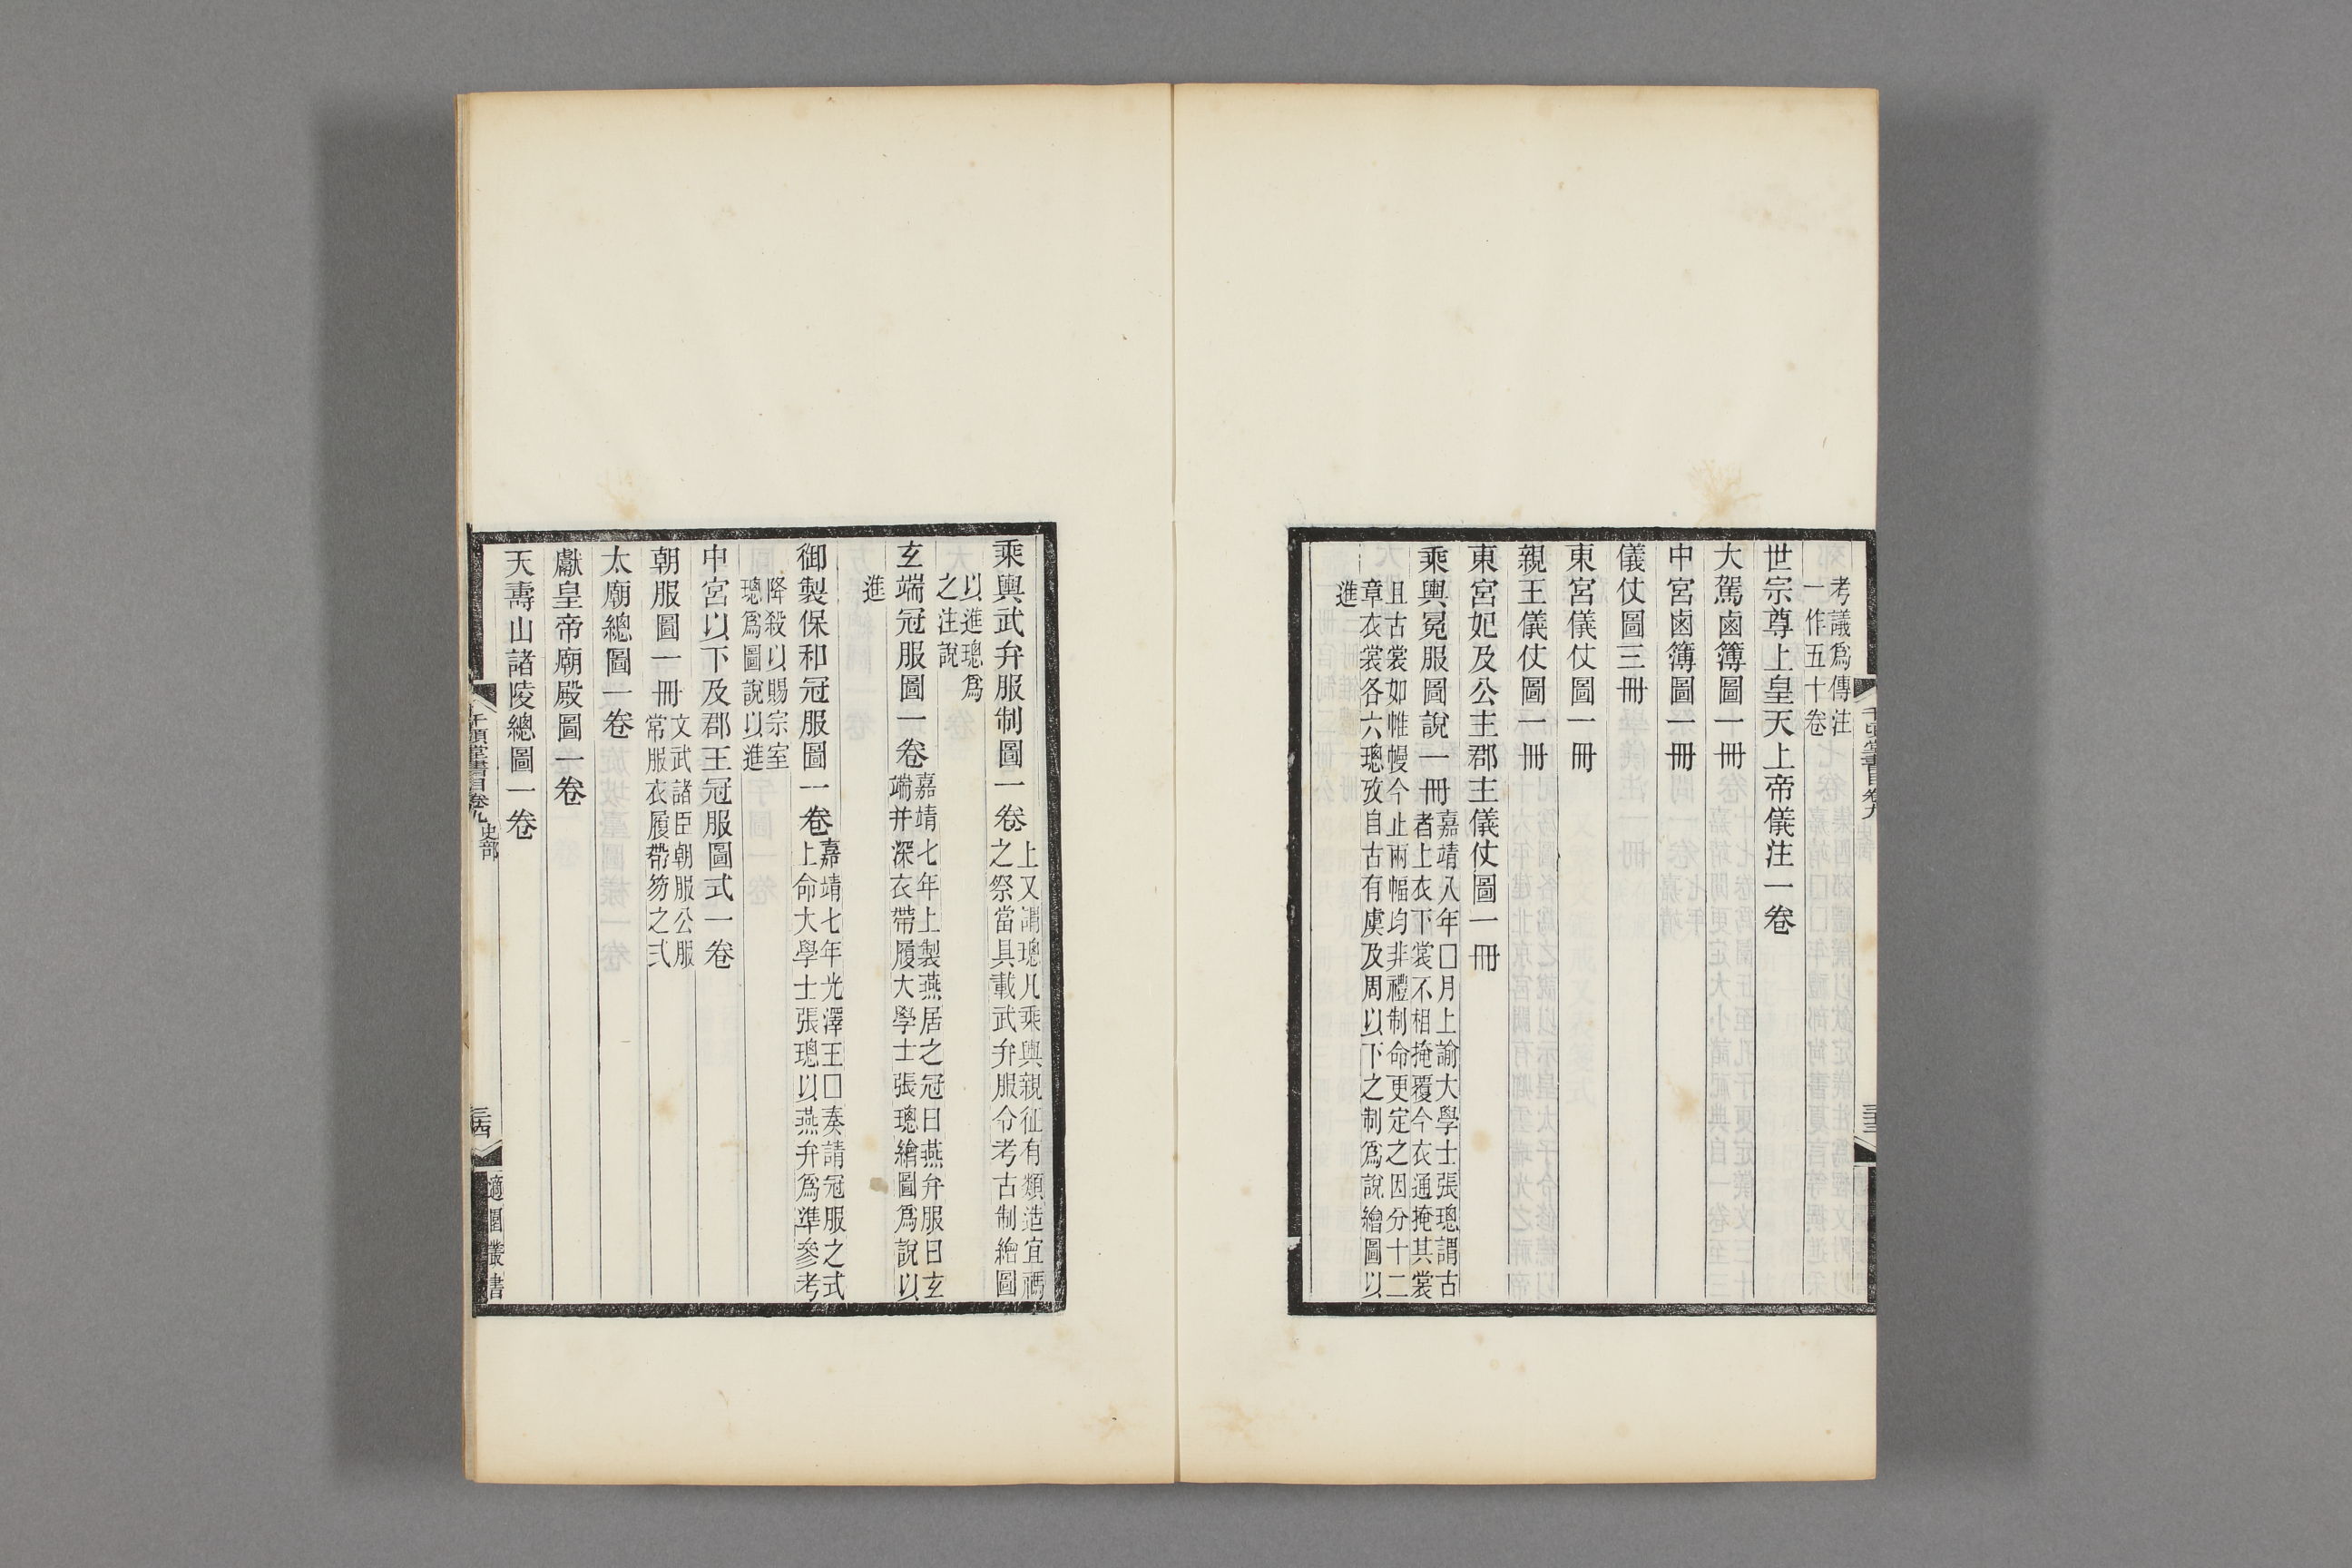 考議爲傳注
一作五十卷
世宗尊上皇天上帝儀注一卷
大駕鹵簿圖一冊
中宮鹵簿圖一冊
儀仗圖三冊
東宮儀仗圖一冊
親王儀仗圖一冊
東宮妃及公主郡主儀仗圖一冊
乘輿冕服圖說一冊
嘉靖八年□月上諭大學士張璁謂古
者上衣下裳不相掩覆今衣通掩其裳
且古裳如帷幔今止兩幅均非禮制命更定之因分十二
章衣裳各六璁攷自古有虞及周以下之制爲說繪圖以
進
千頃堂書目卷九
三十三
乘輿武弁服制圖一卷
上又謂璁凡乘輿親征有類造宜禡
之祭當具載武弁服令考古制繪圖
以進璁爲
之注說
玄端冠服圖一卷
嘉靖七年上製燕居之冠曰燕弁服曰玄
端并深衣帶履大學士張璁繪圖爲說以
進
御製保和冠服圖一卷
嘉靖七年光澤王□奏請冠服之式
上命大學士張璁以燕弁爲準參考
降殺以賜宗室
璁爲圖說以進
中宮以下及郡王冠服圖式一卷
朝服圖一冊
文武諸臣朝服公服
常服衣履帶笏之式
太廟總圖一卷
獻皇帝廟殿圖一卷
天壽山諸陵總圖一卷
千頃堂書目卷九
史部
三十四
適園叢書